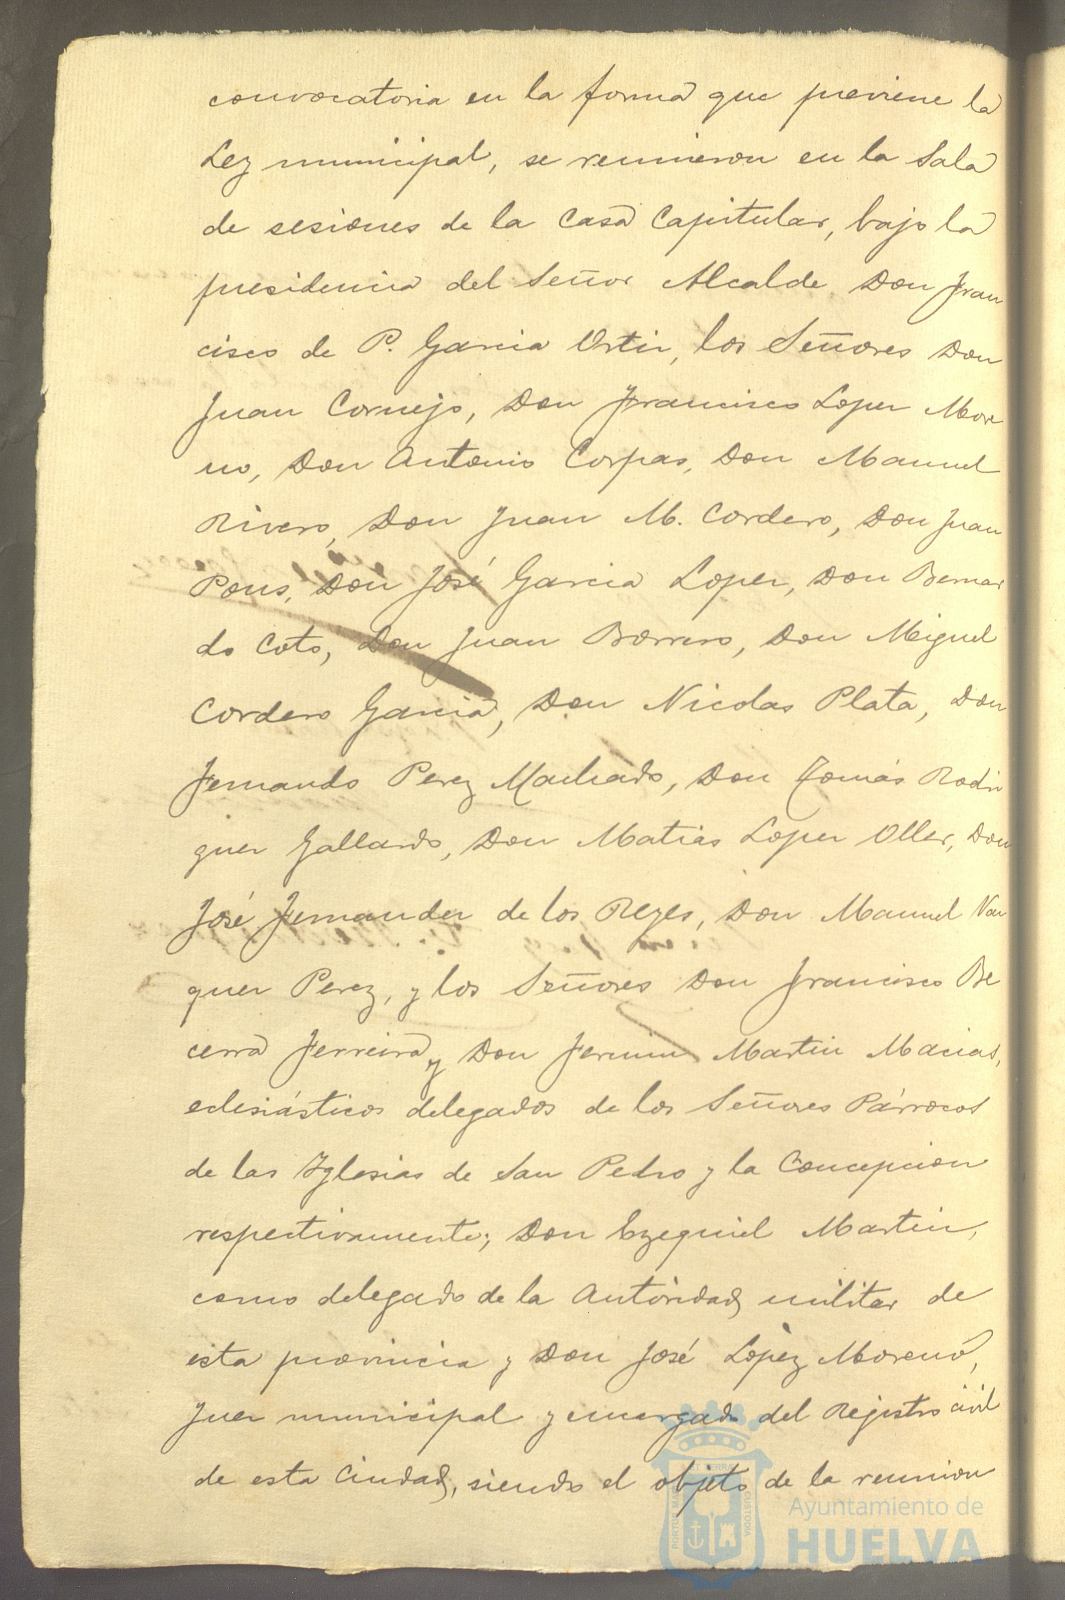 convocatoria en la forma que previene la
Ley municipal, se reunieron en la Sala
de sesiones de la Casa Capitular, bajo la
presidencia del Señor Alcalde Don Fran
cisco de P. Garcia Ortiz, los Señores Don
Juan Cornejo, Don Francisco Lopez More
no, Don Antonio Corpas, Don Manuel
Rivero, Don Juan M. Cordero, Don Juan
Pons, Don José Garcia Lopez, Don Bernar
do Coto, Don Juan Borrero, Don Miguel
Cordero Garcia, Don Nicolas Plata, Don
Fernando Perez Machado, Don Tomás Rodri
guez Gallardo, Don Matias Lopez Oller, Don
José Fernandez de los Reyes, Don Manuel Vaz
quez Perez, y los Señores Don Francisco Be
cerra Ferreira y Don Fermin Martin Macias,
eclesiásticos delegados de los Señores Párrocos
de las Yglesias de San Pedro y la Concepcion
respectivamente; Don Ezequiel Martin,
como delegado de la Autoridad militar de
esta provincia y Don José Lopez Moreno,
Juez municipal y encargado del Registro civil
de esta Ciudad, siendo el objeto de la reunion
Ayuntamiento de
HUELVA